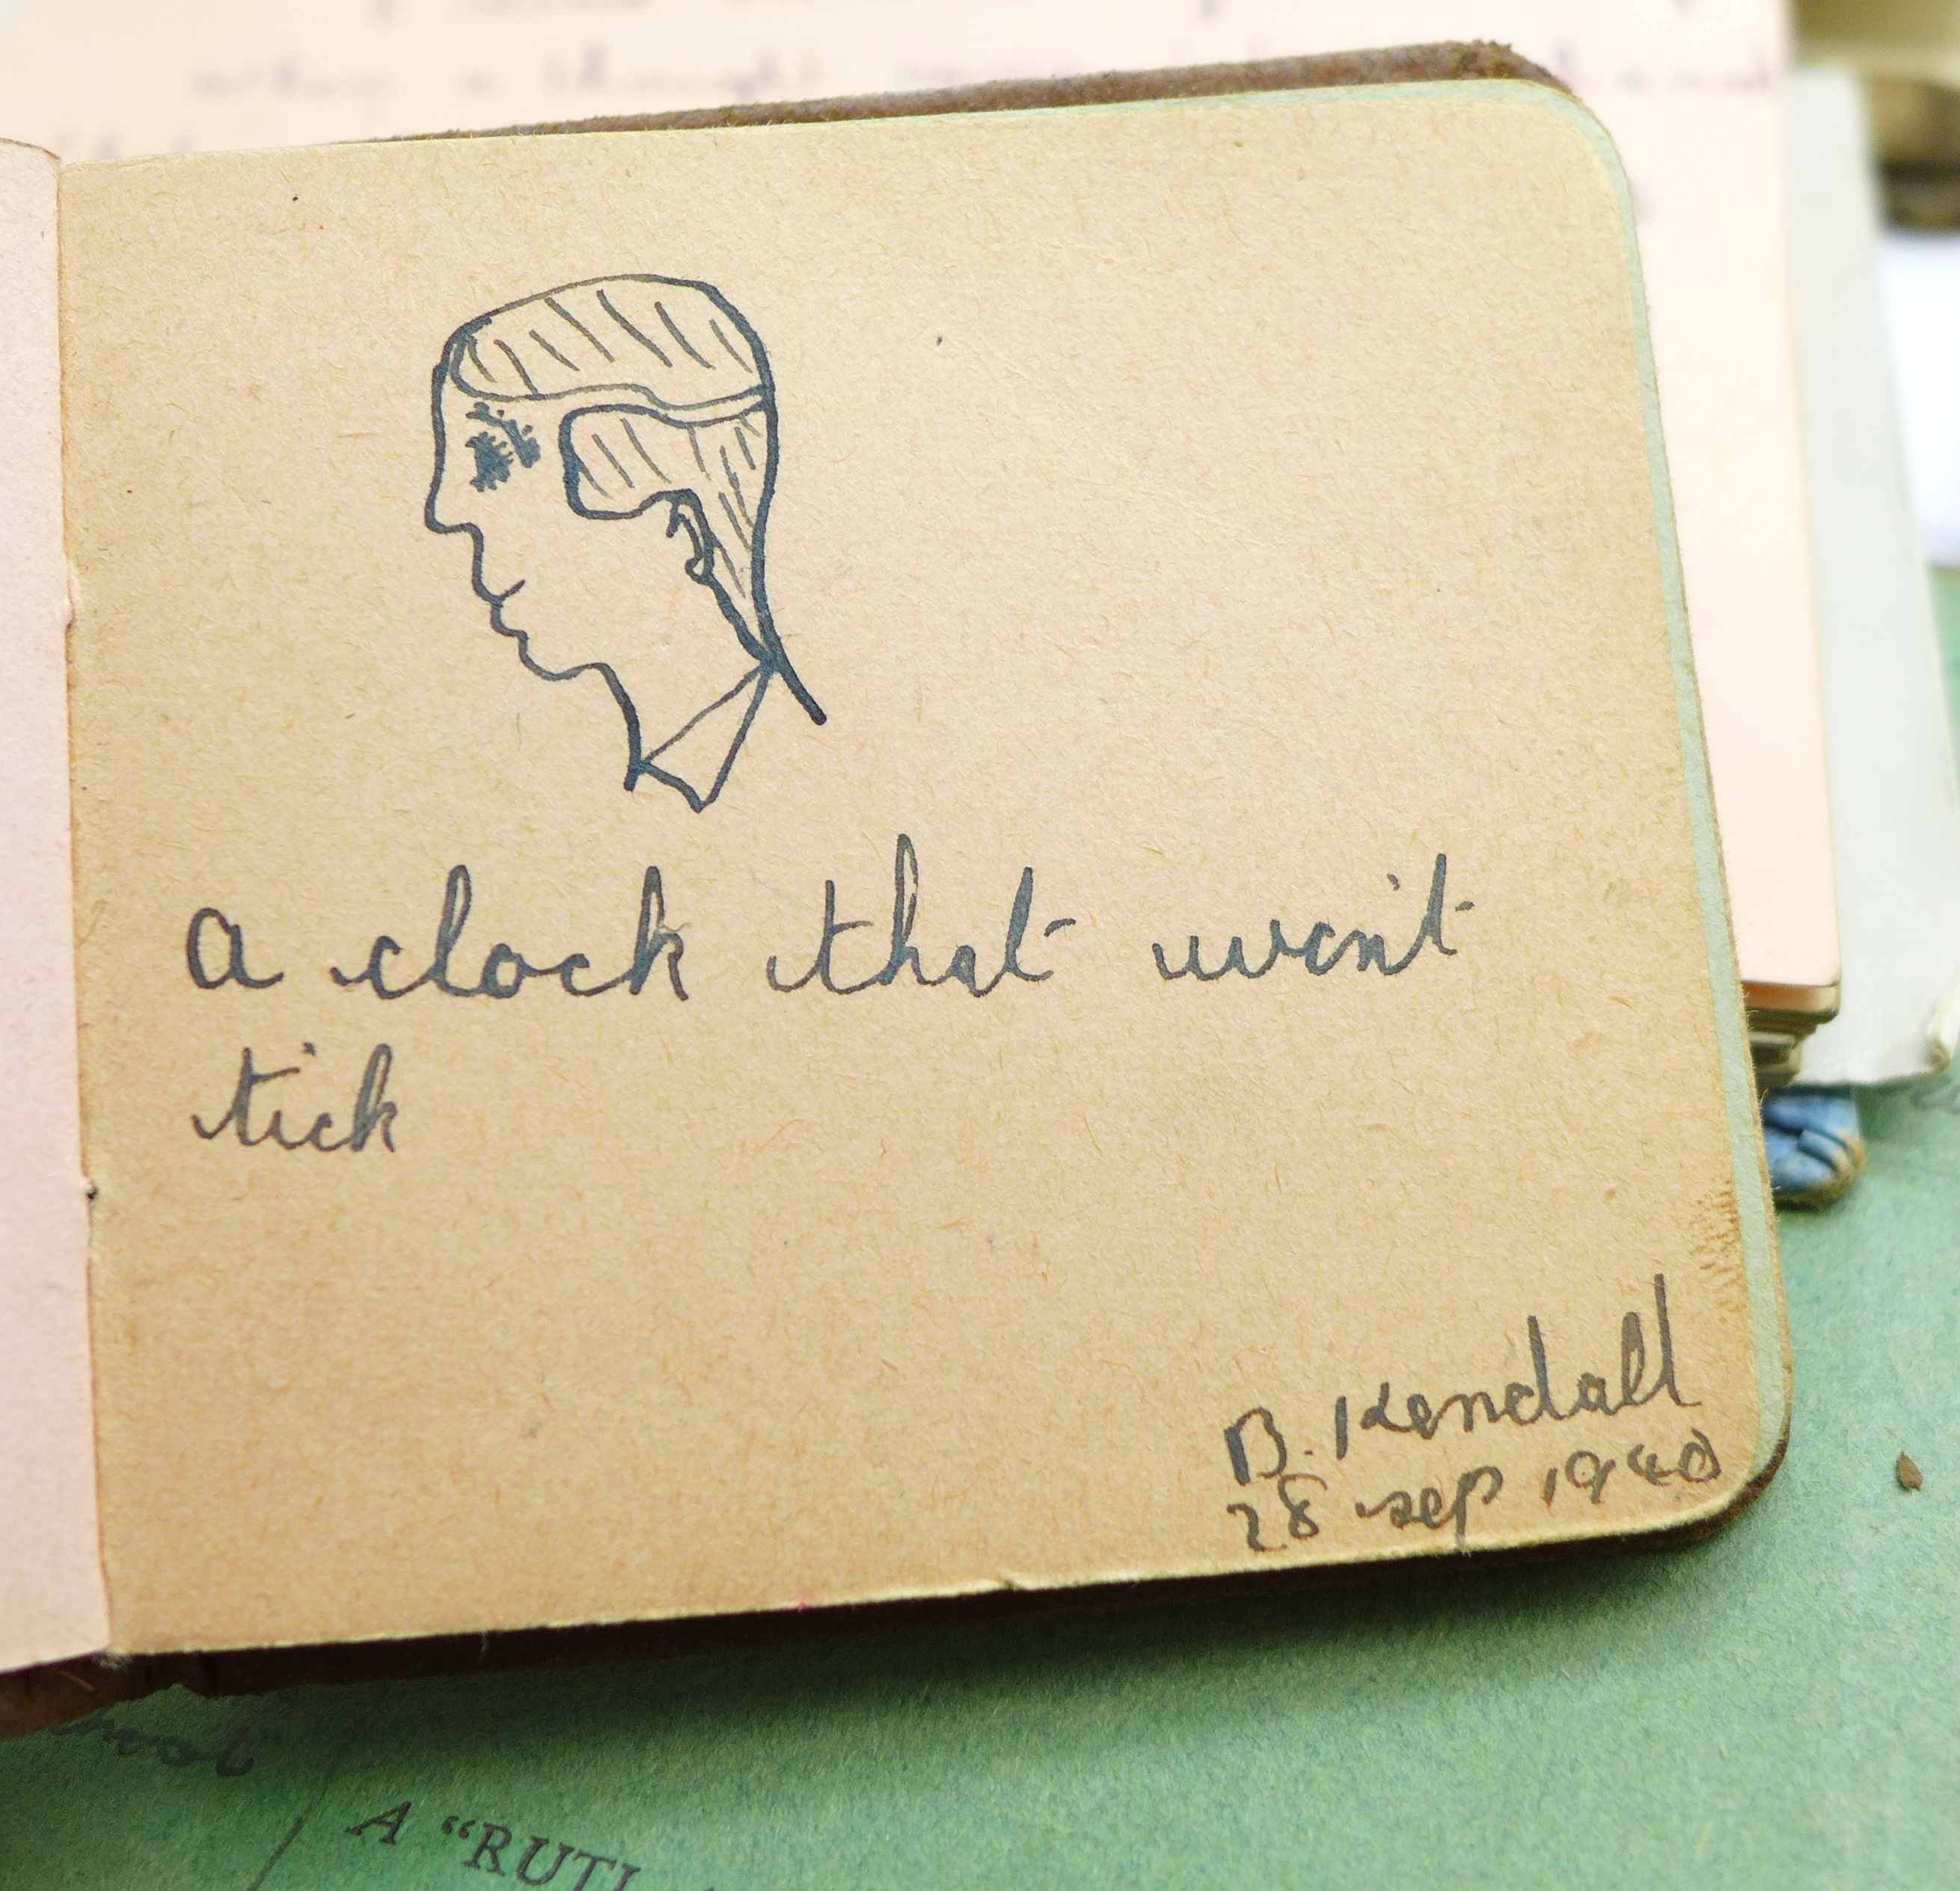 a clock that won't
tick
B. Kendall
28 sep 1940
A "RUTL